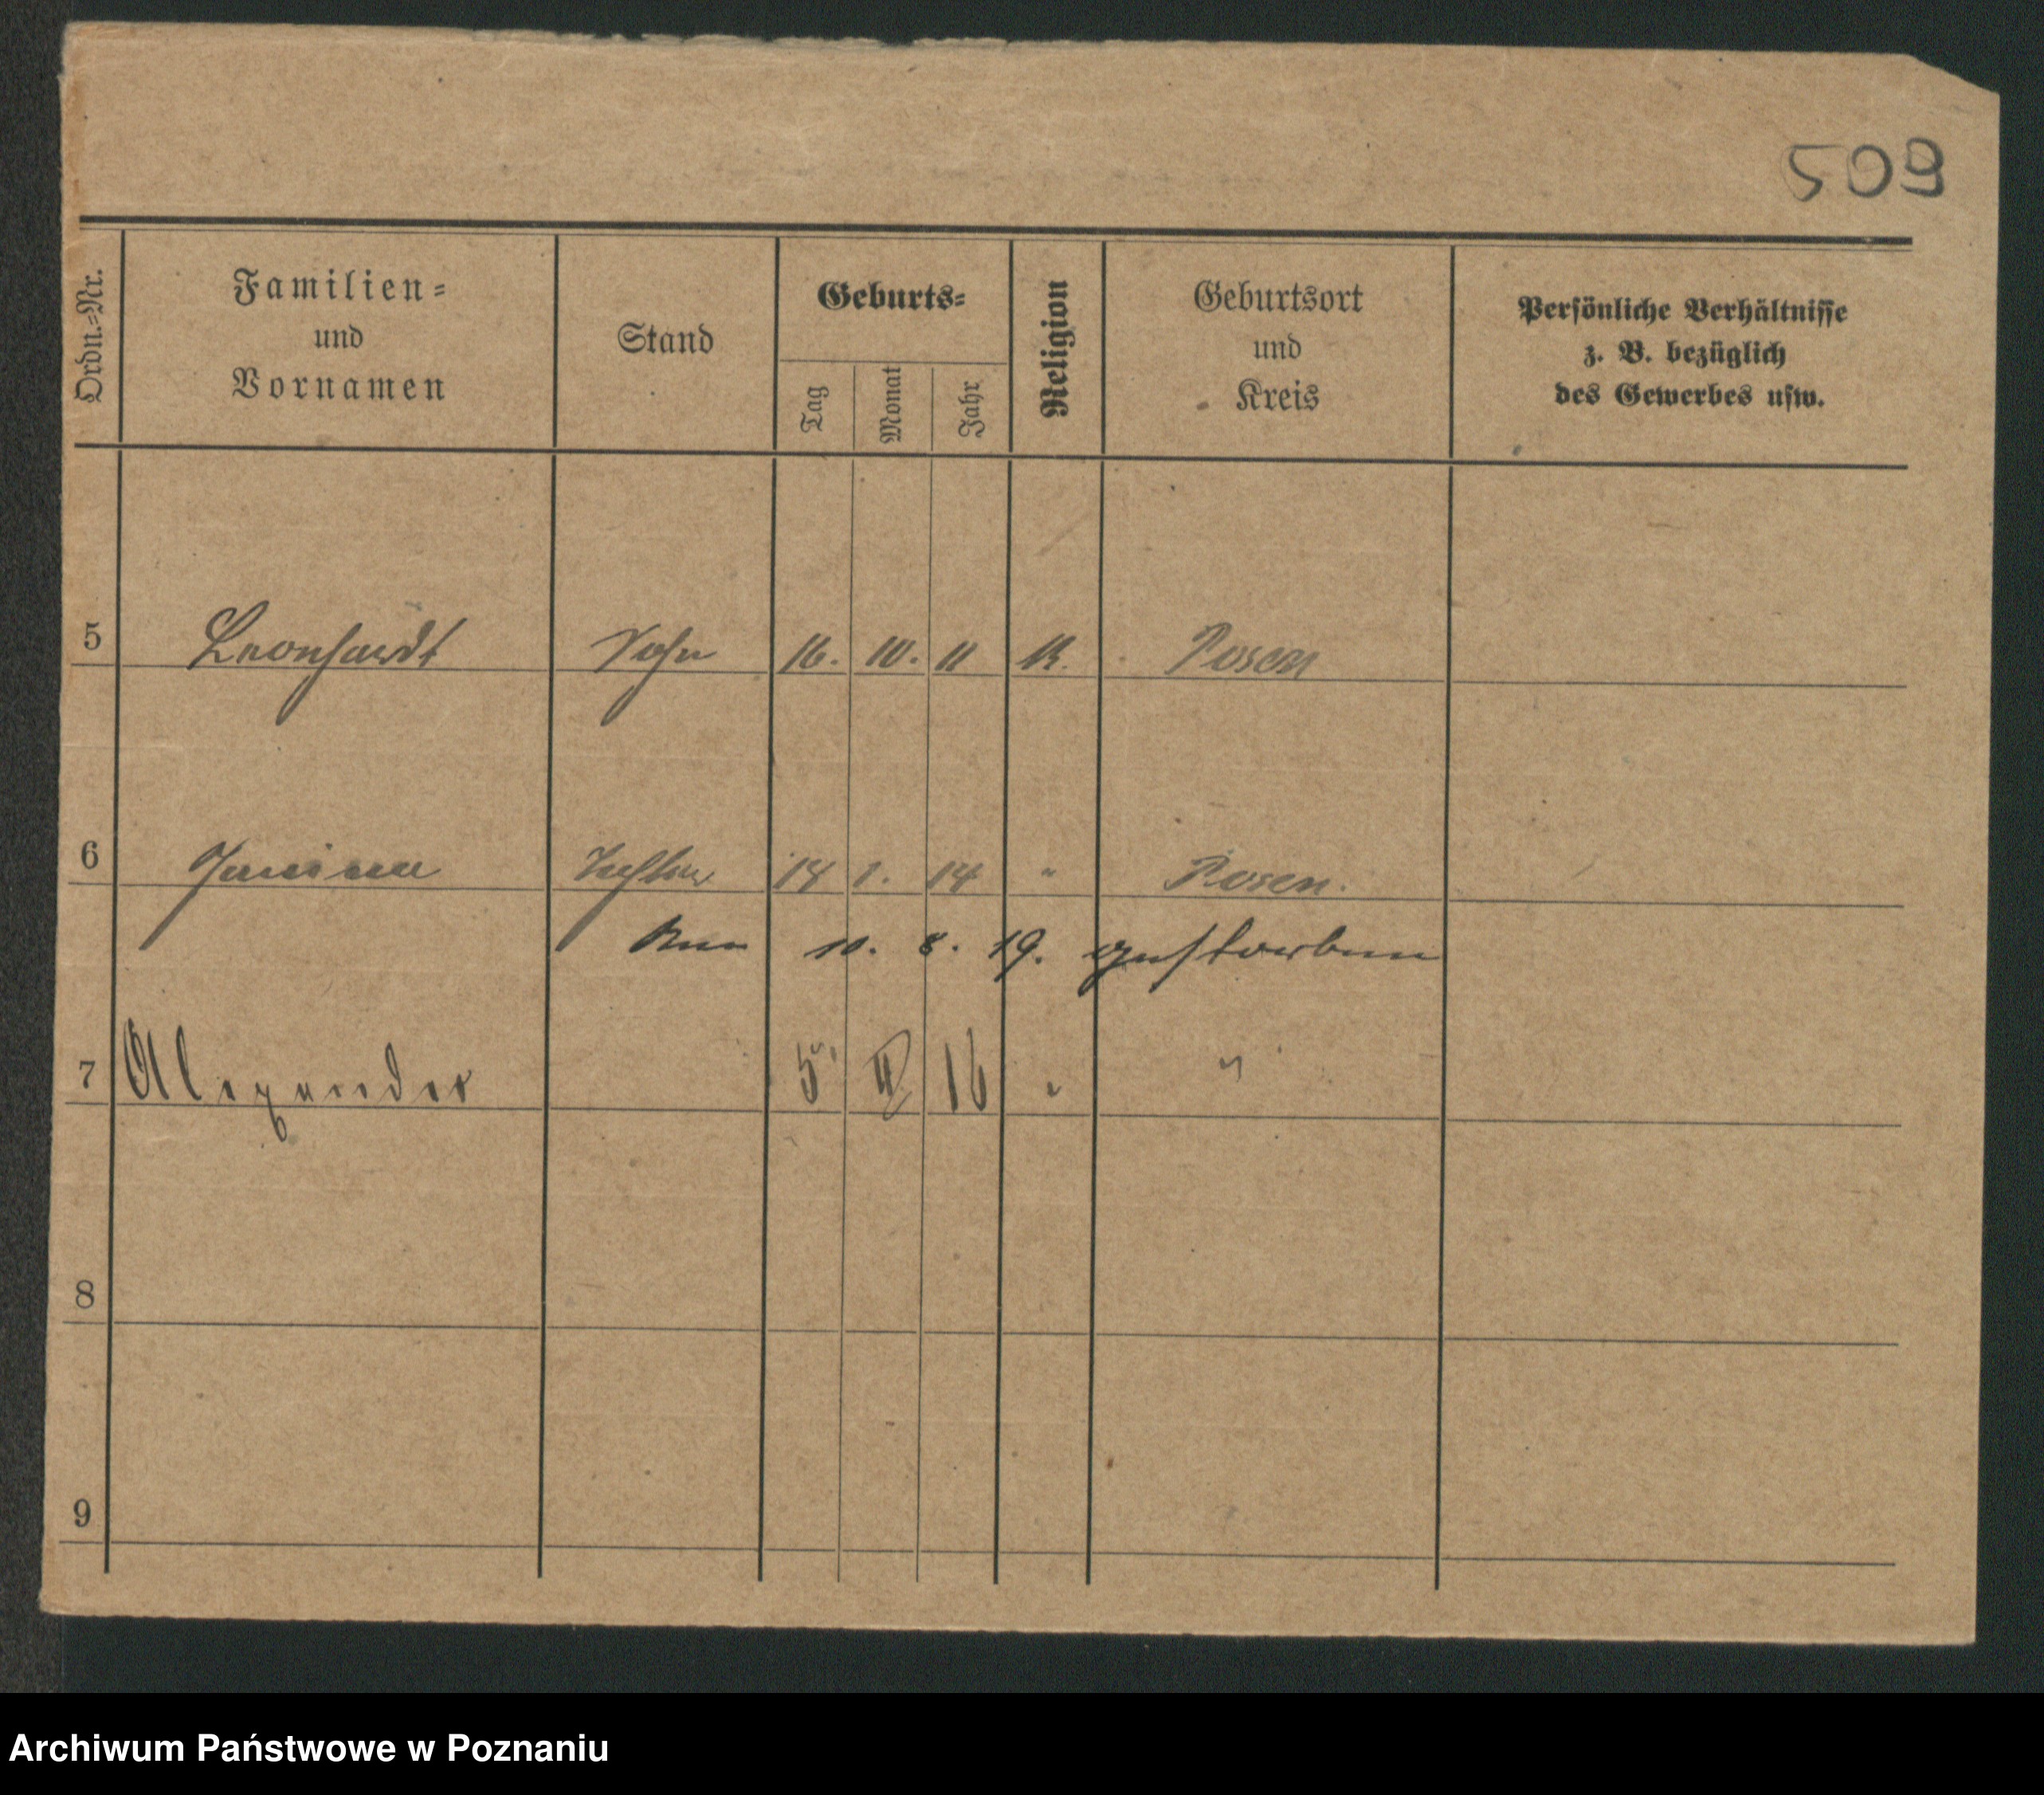 509
Ordn.=Nr. Familien= und Vornamen Stand Geburts= Tag Monat Jahr Religion Geburtsort und Kreis Persönliche Verhältnisse z. B. bezüglich des Gewerbes usw.
5 Leonhardt Sohn 16. 10. 11 K. Posen
6 Janina Tochter 14 1. 14 " Posen.
10. 8. 19. gestorben
7 Alexander 5. II 16 " "
8
9
Archiwum Państwowe w Poznaniu